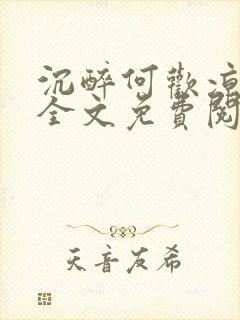 沉醉何歡涼
全文免費閱
天音友希